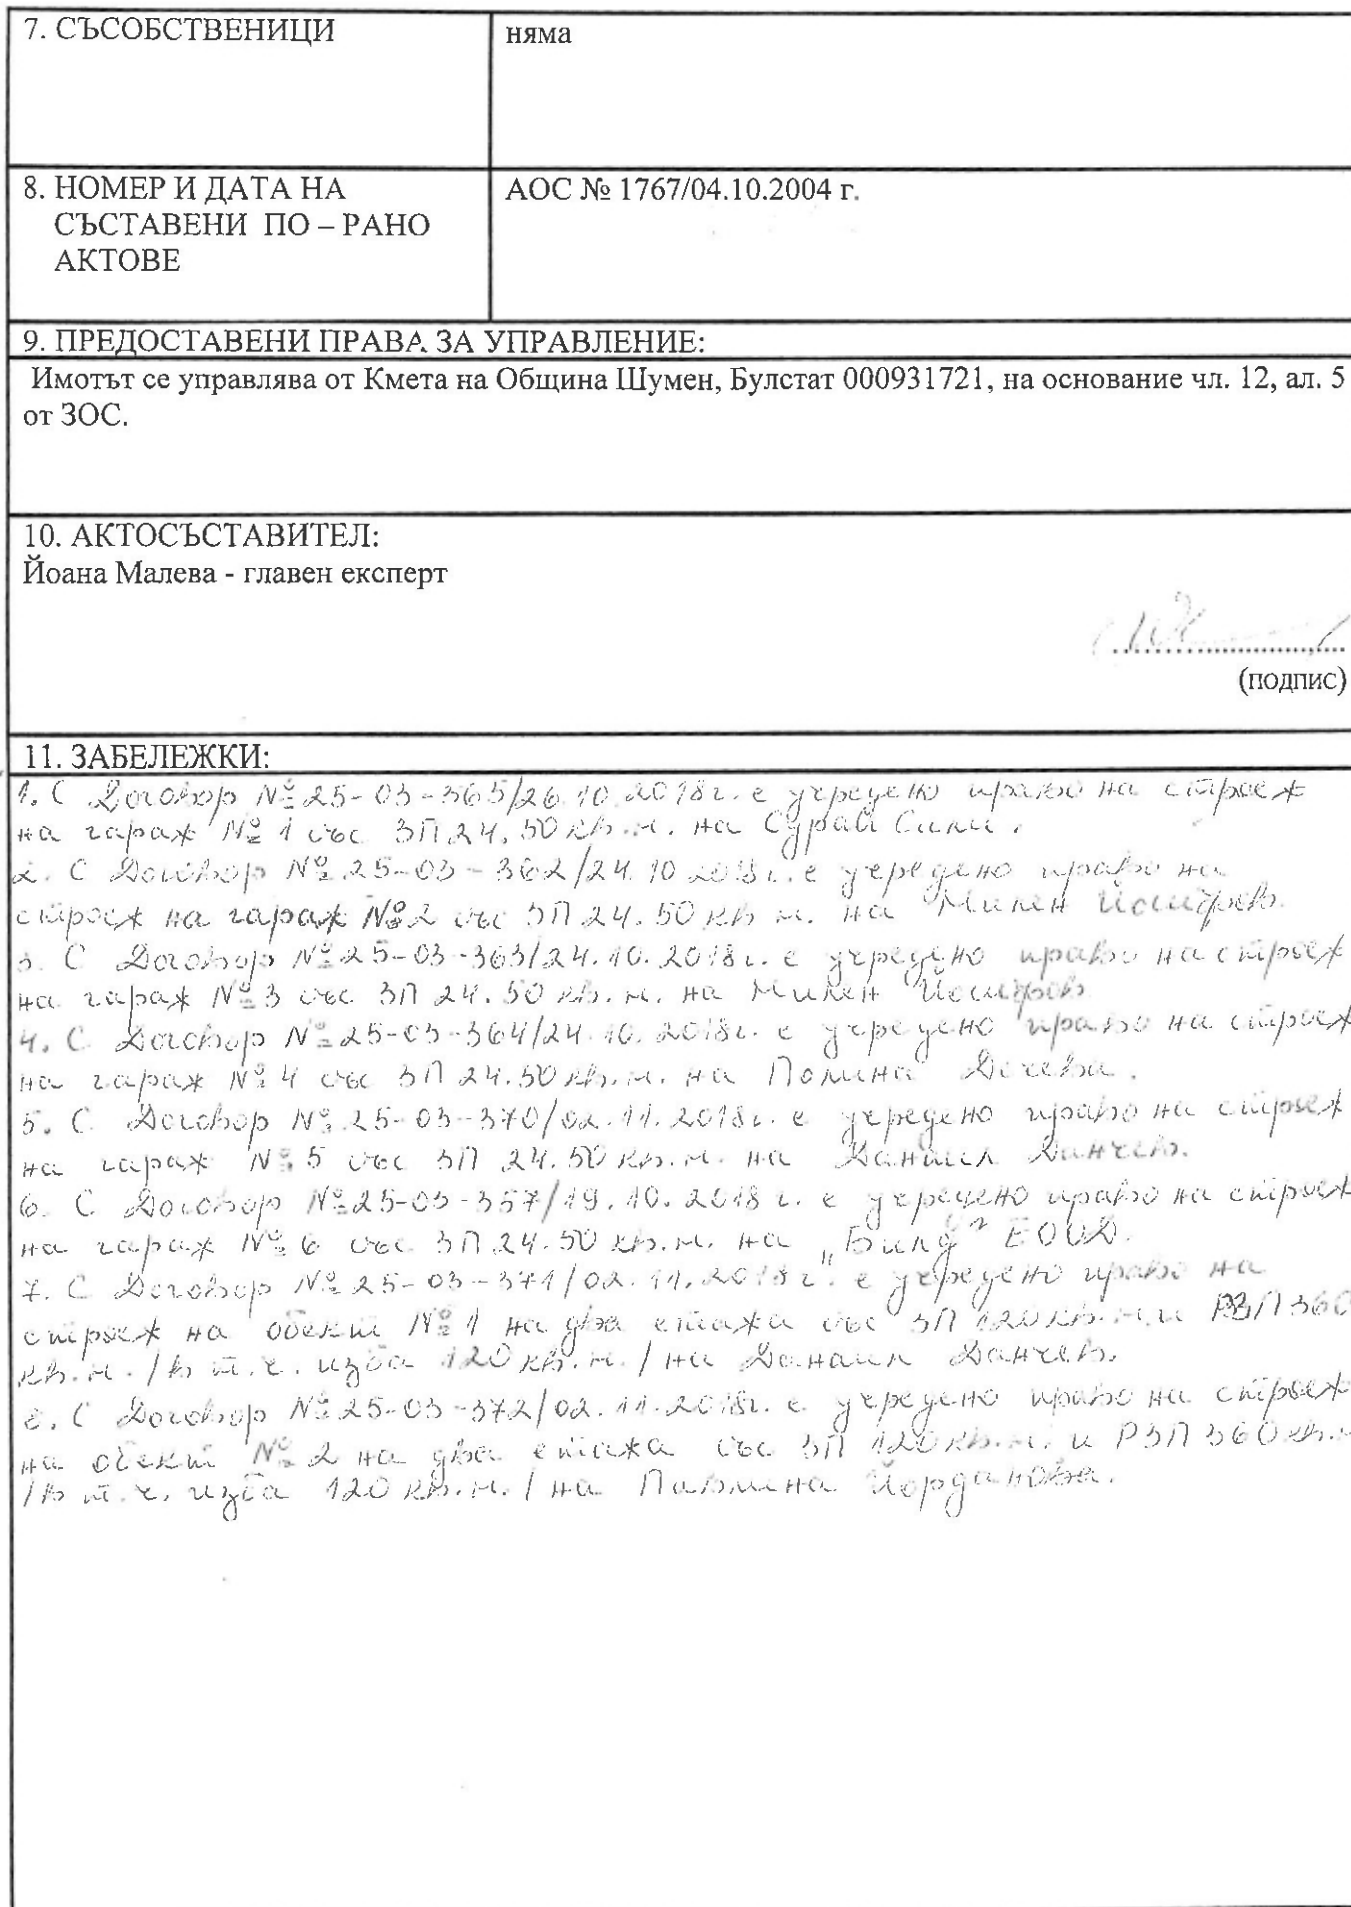 7. СЪСОБСТВЕНИЦИ
няма
8. НОМЕР И ДАТА НА
СЪСТАВЕНИ ПО – РАНО
АКТОВЕ
АОС № 1767/04.10.2004 г.
9. ПРЕДОСТАВЕНИ ПРАВА ЗА УПРАВЛЕНИЕ:
Имотът се управлява от Кмета на Община Шумен, Булстат 000931721, на основание чл. 12, ал. 5
от ЗОС.
10. АКТОСЪСТАВИТЕЛ:
Йоана Малева - главен експерт
(подпис)
11. ЗАБЕЛЕЖКИ:
1. С Договор № 25-03-365/26.10.2018г. е учредено право на строеж
на гараж № 1 със ЗП 24.50 кв.м. на
2. С Договор № 25-03-362/24.10.2018г. е учредено право на
строеж на гараж № 2 със ЗП 24.50 кв.м. на Милен
3. С Договор № 25-03-363/24.10.2018г. е учредено право на строеж
на гараж № 3 със ЗП 24.50 кв.м. на Милен
4. С Договор № 25-03-364/24.10.2018г. е учредено право на строеж
на гараж № 4 със ЗП 24.50 кв.м. на Полина Дечева.
5. С Договор № 25-03-370/02.11.2018г. е учредено право на строеж
на гараж № 5 със ЗП 24.50 кв.м. на Данаил Данчев.
6. С Договор № 25-03-357/19.10.2018 г. е учредено право на строеж
на гараж № 6 със ЗП 24.50 кв.м. на „Билд" ЕООД.
7. С Договор № 25-03-371/02.11.2018г. е учредено право на
строеж на обект № 1 на два етажа със ЗП 120 кв.м. и РЗП 360
кв.м. /в т.ч. изба 120 кв.м./ на Данаил Данчев.
8. С Договор № 25-03-372/02.11.2018г. е учредено право на строеж
на обект № 2 на два етажа със ЗП 120 кв.м. и РЗП 360 кв.м
/в т.ч. изба 120 кв.м./ на Павлина Йорданова.